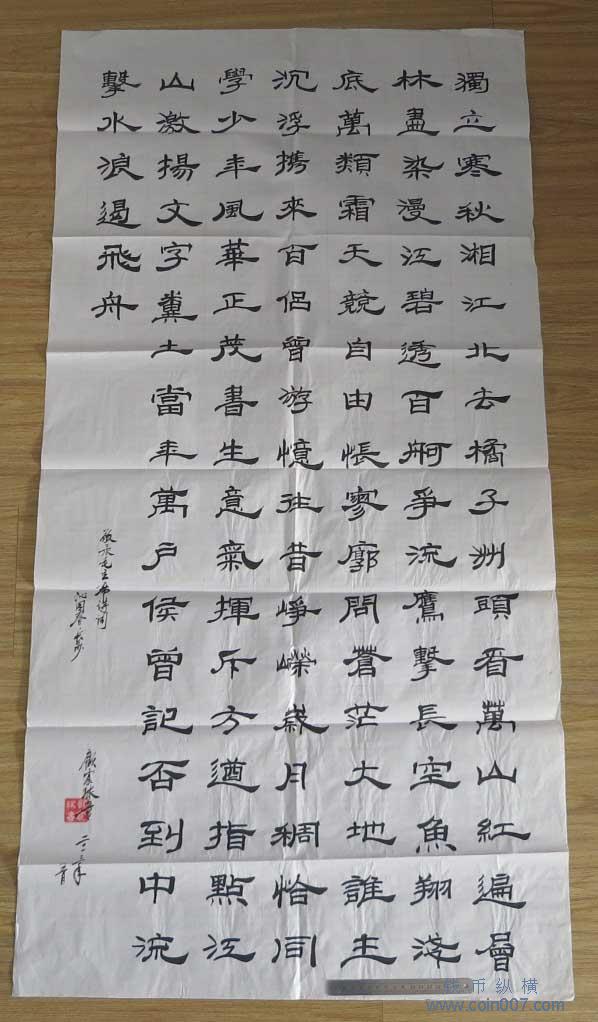 獨立寒秋湘江北去橘子洲頭看萬山紅遍層
林盡染漫江碧透百舸爭流鷹擊長空魚翔淺
底萬類霜天競自由悵寥廓問蒼茫大地誰主
沉浮携來百侶曾游憶往昔崢嶸歲月稠恰同
學少年風華正茂書生意氣揮斥方遒指點江
山激揚文字糞土當年萬戶侯曾記否到中流
擊水浪遏飛舟
敬录毛主席诗词
沁园春长沙
钱币纵横
www.coin007.com